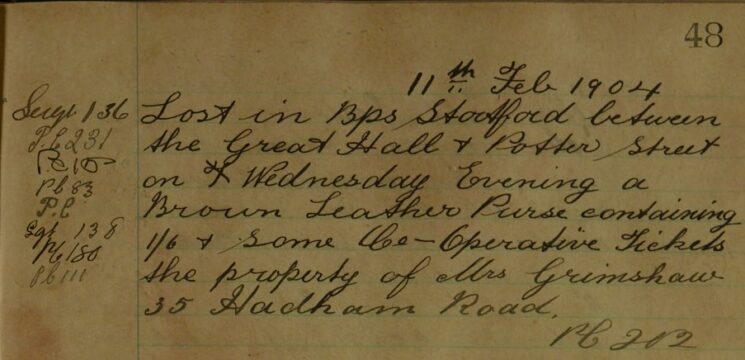 48
11th Feb 1904
Sergt 136
P.C 231
P.C
PC 83
P.C
Sgt 138
PC 180
PC 111
Lost in Bps Stortford between
the Great Hall & Potter Street
on Wednesday Evening a
Brown Leather Purse containing
1/6 & some Co-Operative Tickets
the property of Mrs Grimshaw
35 Hadham Road.
PC 202